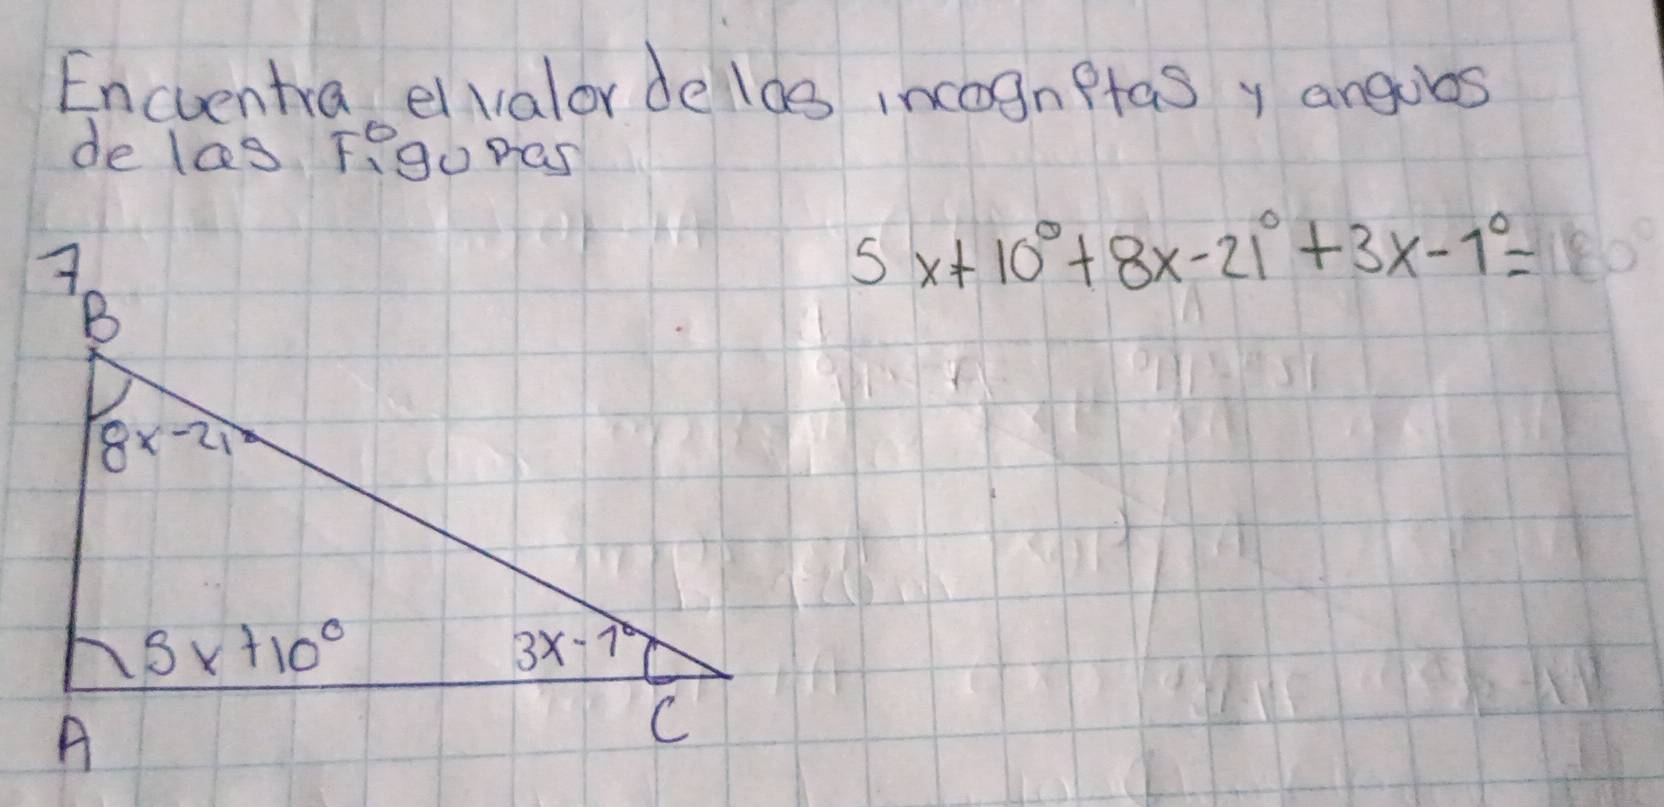 Encuentra el valor de las incognitas y angulos
de las Figuras
7
5x+10°+8x-21°+3x-1°=180°
B
8x-21°
5x+10°
3x-1°
A
C